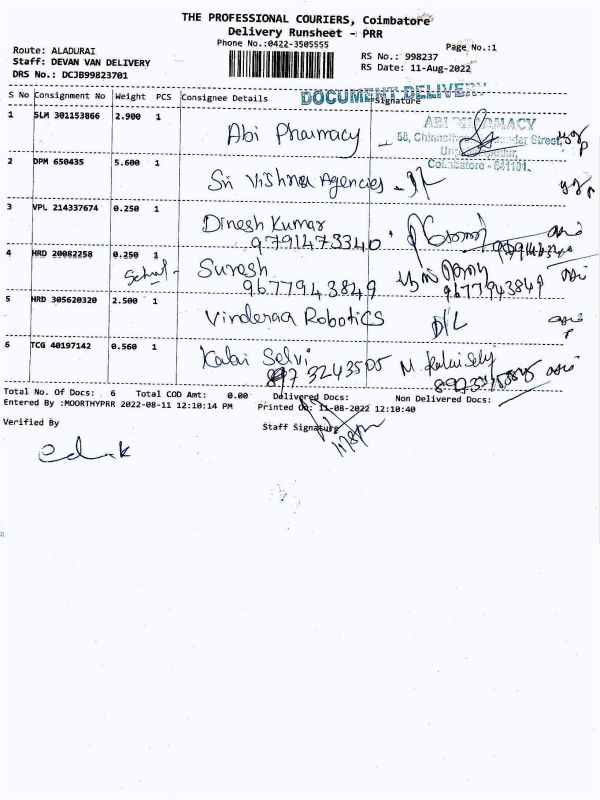 THE PROFESSIONAL COURIERS, Coimbatore
Delivery Runsheet - PRR
Phone No.:0422-3505555
Page No.:1
Route: ALADURAI
Staff: DEVAN VAN DELIVERY
DRS No.: DCJB99823701
RS No.: 998237
RS Date: 11-Aug-2022
S No Consignment No Weight PCS Consignee Details Signature
DOCUMENT DELIVERY
1 SLM 301153866 2.900 1 Abi Pharmacy
ABI PHARMACY
Coimbatore - 641101.
2 DPM 650435 5.600 1 Sri Vishnu Agencies
3 VPL 214337674 0.250 1 Dinesh Kumar
9791473340
4 HRD 20082258 0.250 1 Suresh
9677943849 9677943849
5 HRD 305620320 2.500 1 Vinderaa Robotics D/L
6 TCG 40197142 0.560 1 Kalai Selvi M. Kalaiselvi
8973243505
Total No. Of Docs: 6 Total COD Amt: 0.00 Delivered Docs: Non Delivered Docs:
Entered By :MOORTHYPRR 2022-08-11 12:10:14 PM Printed On: 11-08-2022 12:10:40
Verified By Staff Signature